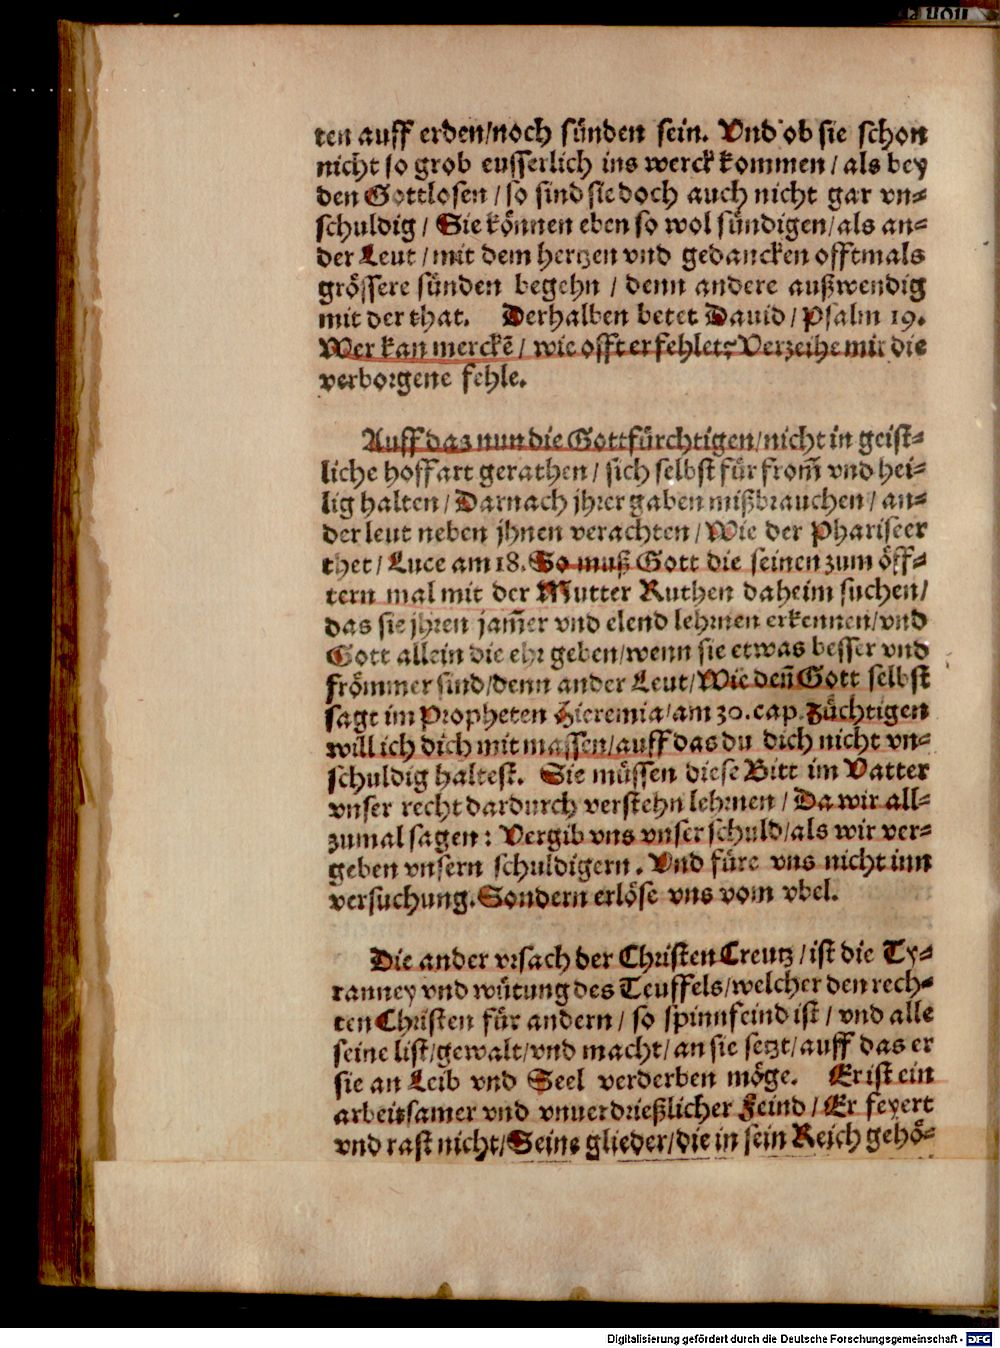 ten auff erden/noch sünden sein. Vnd ob sie schon
nicht so grob eusserlich ins werck kommen / als bey
den Gottlosen / so sind sie doch auch nicht gar vn-
schuldig / Sie können eben so wol sündigen/als an-
der Leut / mit dem hertzen vnd gedancken offtmals
grössere sünden begehn / denn andere außwendig
mit der that. Derhalben betet Dauid / Psalm 19.
Wer kan merckē / wie offt er fehlet? Verzeihe mir die
verborgene fehle.
Auff daz nun die Gottfürchtigen/nicht in geist-
liche hoffart gerathen / sich selbst für from̄ vnd hei-
lig halten / Darnach jhrer gaben mißbrauchen / an-
der leut neben jhnen verachten / Wie der Phariseer
thet / Luce am 18. So muß Gott die seinen zum öff-
tern mal mit der Mutter Ruthen daheim suchen/
das sie jhren jam̄er vnd elend lehrnen erkennen/vnd
Gott allein die ehr geben/wenn sie etwas besser vnd
frömmer sind/denn ander Leut/Wie den̄ Gott selbst
sagt im Propheten Hieremia/am 30. cap. Züchtigen
will ich dich mit massen/auff das du dich nicht vn-
schuldig haltest. Sie müssen diese Bitt im Vatter
vnser recht dardurch verstehn lehrnen / Da wir all-
zumal sagen: Vergib vns vnser schuld/als wir ver-
geben vnsern schuldigern. Vnd füre vns nicht inn
versuchung. Sondern erlöse vns vom vbel.
Die ander vrsach der Christen Creutz / ist die Ty-
ranney vnd wütung des Teuffels/welcher den rech-
ten Christen für andern / so spinnfeind ist / vnd alle
seine list/gewalt/vnd macht/an sie setzt/auff das er
sie an Leib vnd Seel verderben möge. Er ist ein
arbeitsamer vnd vnuerdrießlicher Feind / Er feyert
vnd rast nicht/Seine glieder/die in sein Reich gehö-
Digitalisierung gefördert durch die Deutsche Forschungsgemeinschaft - DFG